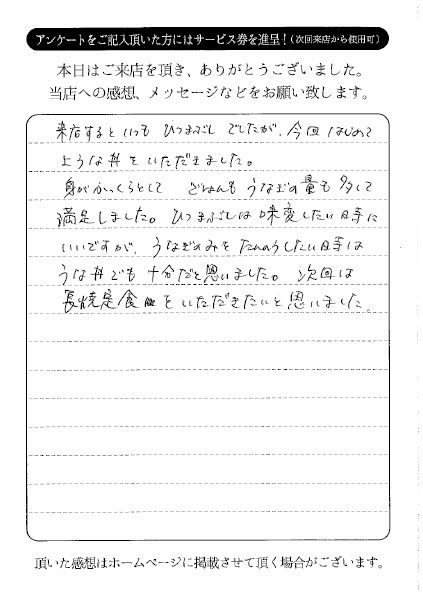 アンケートをご記入頂いた方にはサービス券を進呈！（次回来店から使用可）
本日はご来店を頂き、ありがとうございました。
当店への感想、メッセージなどをお願い致します。
来店するといつも ひつまぶし でしたが、今回 はじめて
うな丼 をいただきました。
身がふっくらとして ごはんも うなぎの量も 多くて
満足しました。ひつまぶしは味変したい時に
いいですが、うなぎのみを たんのうしたい時は
うな丼でも 十分だと思いました。次回は
長焼定食 をいただきたいと思いました。
頂いた感想はホームページに掲載させて頂く場合がございます。